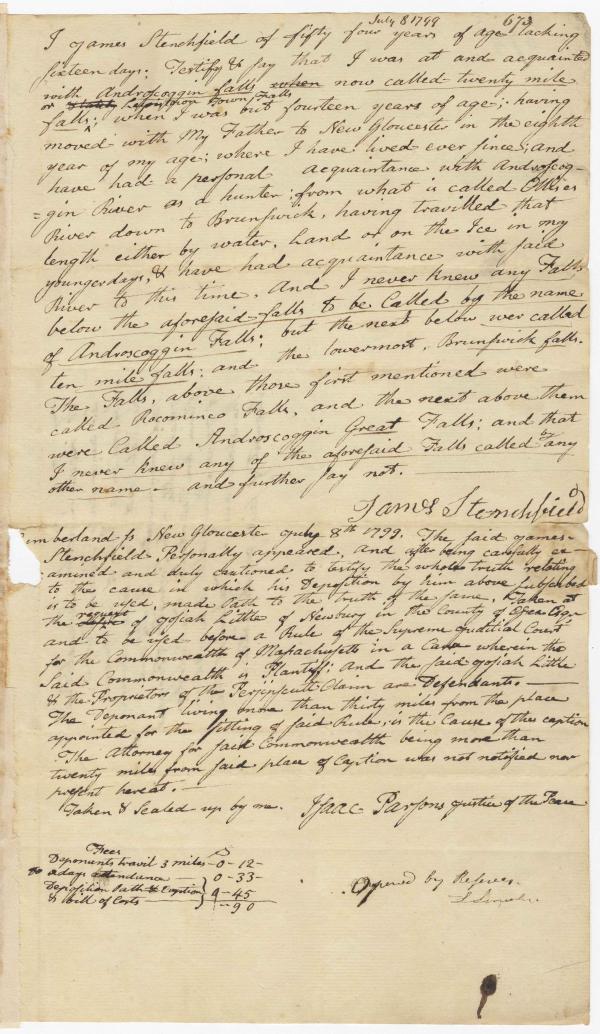 July 8 1799 673
I James Stenchfield of fifty four years of age lacking
sixteen days: Testify & say that I was at and acquainted
with Androscoggin falls when now called twenty mile
or Lewiston Town Falls
falls; when I was but fourteen years of age; having
moved with My Father to New Gloucester in the eighth
year of my age; where I have lived ever since; and
have had a personal acquaintance with Androscog-
=gin River as a hunter; from what is called Ellis's
River down to Brunswick, having travilled that
length either by water, Land or on the Ice in my
younger days, & have had acquaintance with said
River to this time. And I never knew any Falls
below the aforesaid falls to be Called by the name
of Androscoggin Falls; but the next below wer called
ten mile falls; and the lowermost, Brunswick falls.
The Falls, above those first mentioned were
called Rocomineo Falls, and the next above them
were Called Androscoggin Great Falls; and that
I never knew any of the aforesaid Falls called by any
other name — and further say not.
James Stenchfield
Cumberland ss New Gloucester July 8th 1799. The said James
Stenchfield Personally appeared, and after being carefully ex-
amined and duly cautioned to testify the whole truth relating
to the cause in which his Deposition by him above subscribed
is to be used, made Oath to the truth of the same. Taken at
the request of Josiah Little of Newbury in the County of Essex Esqr
and to be used before a Rule of the Supreme Judicial Court
for the Commonwealth of Massachusetts in a Case wherein the
Said Commonwealth is Plantiff: And the said Josiah Little
& the Proprietors of the Pejepscutt Claim are Defendants. —
The Deponant living more than thirty miles from the place
appointed for the sitting of said Rule; is the Cause of this caption
The Attorney for said Commonwealth being more than
twenty miles from said place of Caption was not notified nor
present hereat. —
Taken & Sealed up by me. Isaac Parsons Justice of the Peace
Fees
Deponants travil 3 miles — 0-12-
to a days attendance — 0-33-
Deposition Oath & Caption
& bill of Costs — 0-45
-90
Opened by Referees
L Lincoln